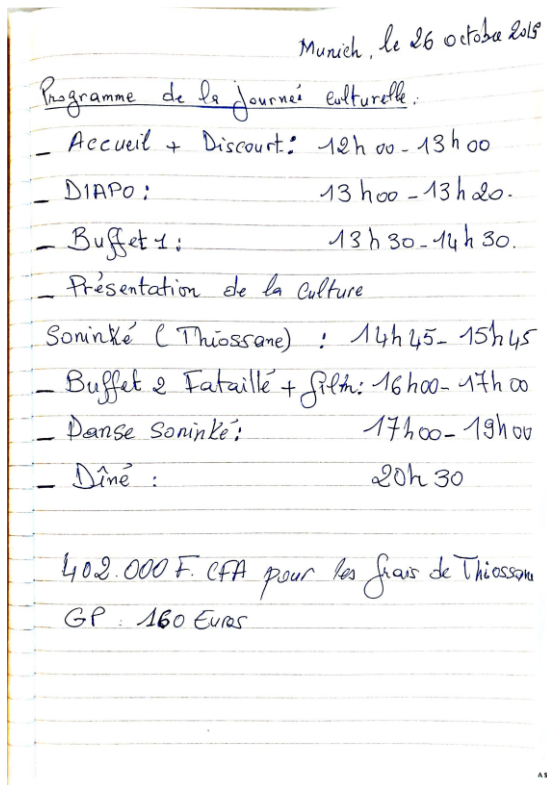 Munich, le 26 octobre 2015
Programme de la journeé culturelle.
_ Accueil + Discourt: 12h00-13h00
_ DIAPO: 13h00-13h20.
_ Buffet 1: 13h30-14h30.
_ Présentation de la culture
Soninké (Thiossane) : 14h45-15h45
_ Buffet 2 Fataillé + film: 16h00-17h00
_ Danse Soninké: 17h00-19h00
_ Dîné : 20h30
402.000 F. CFA pour les frais de Thiossan
GP: 160 Euros